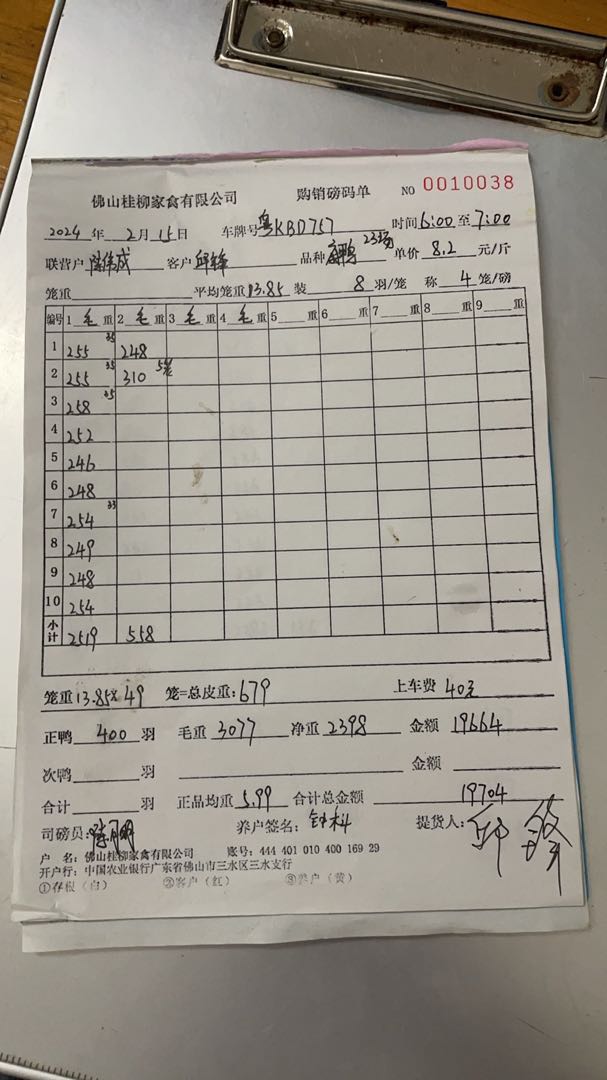 佛山桂柳家禽有限公司 购销磅码单 NO 0010038
2024年 2月 15日 车牌号 粤KBD757 时间 6:00 至 7:00
联营户 陈伟成 客户 邱锋 品种 23场 单价 8.2 元/斤
笼重 平均笼重 13.85 装 8 羽/笼 称 4 笼/磅
编号 1 毛 重 2 毛 重 3 毛 重 4 毛 重 5 重 6 重 7 重 8 重 9 重
1 255 35 248
2 255 35 310 5笼
3 258 35
4 252
5 246
6 248
7 254 33
8 249
9 248
10 254
小计 2519 558
笼重 13.85 × 49 笼=总皮重: 679 上车费 40元
正鸭 400 羽 毛重 3077 净重 2398 金额 19664
次鸭 羽 金额
合计 羽 正品均重 5.99 合计总金额 19704
司磅员: 养户签名: 钟科 提货人:
户 名: 佛山桂柳家禽有限公司 账号: 444 401 010 400 169 29
开户行: 中国农业银行广东省佛山市三水区三水支行
①存根(白) ②客户(红) ③养户(黄)